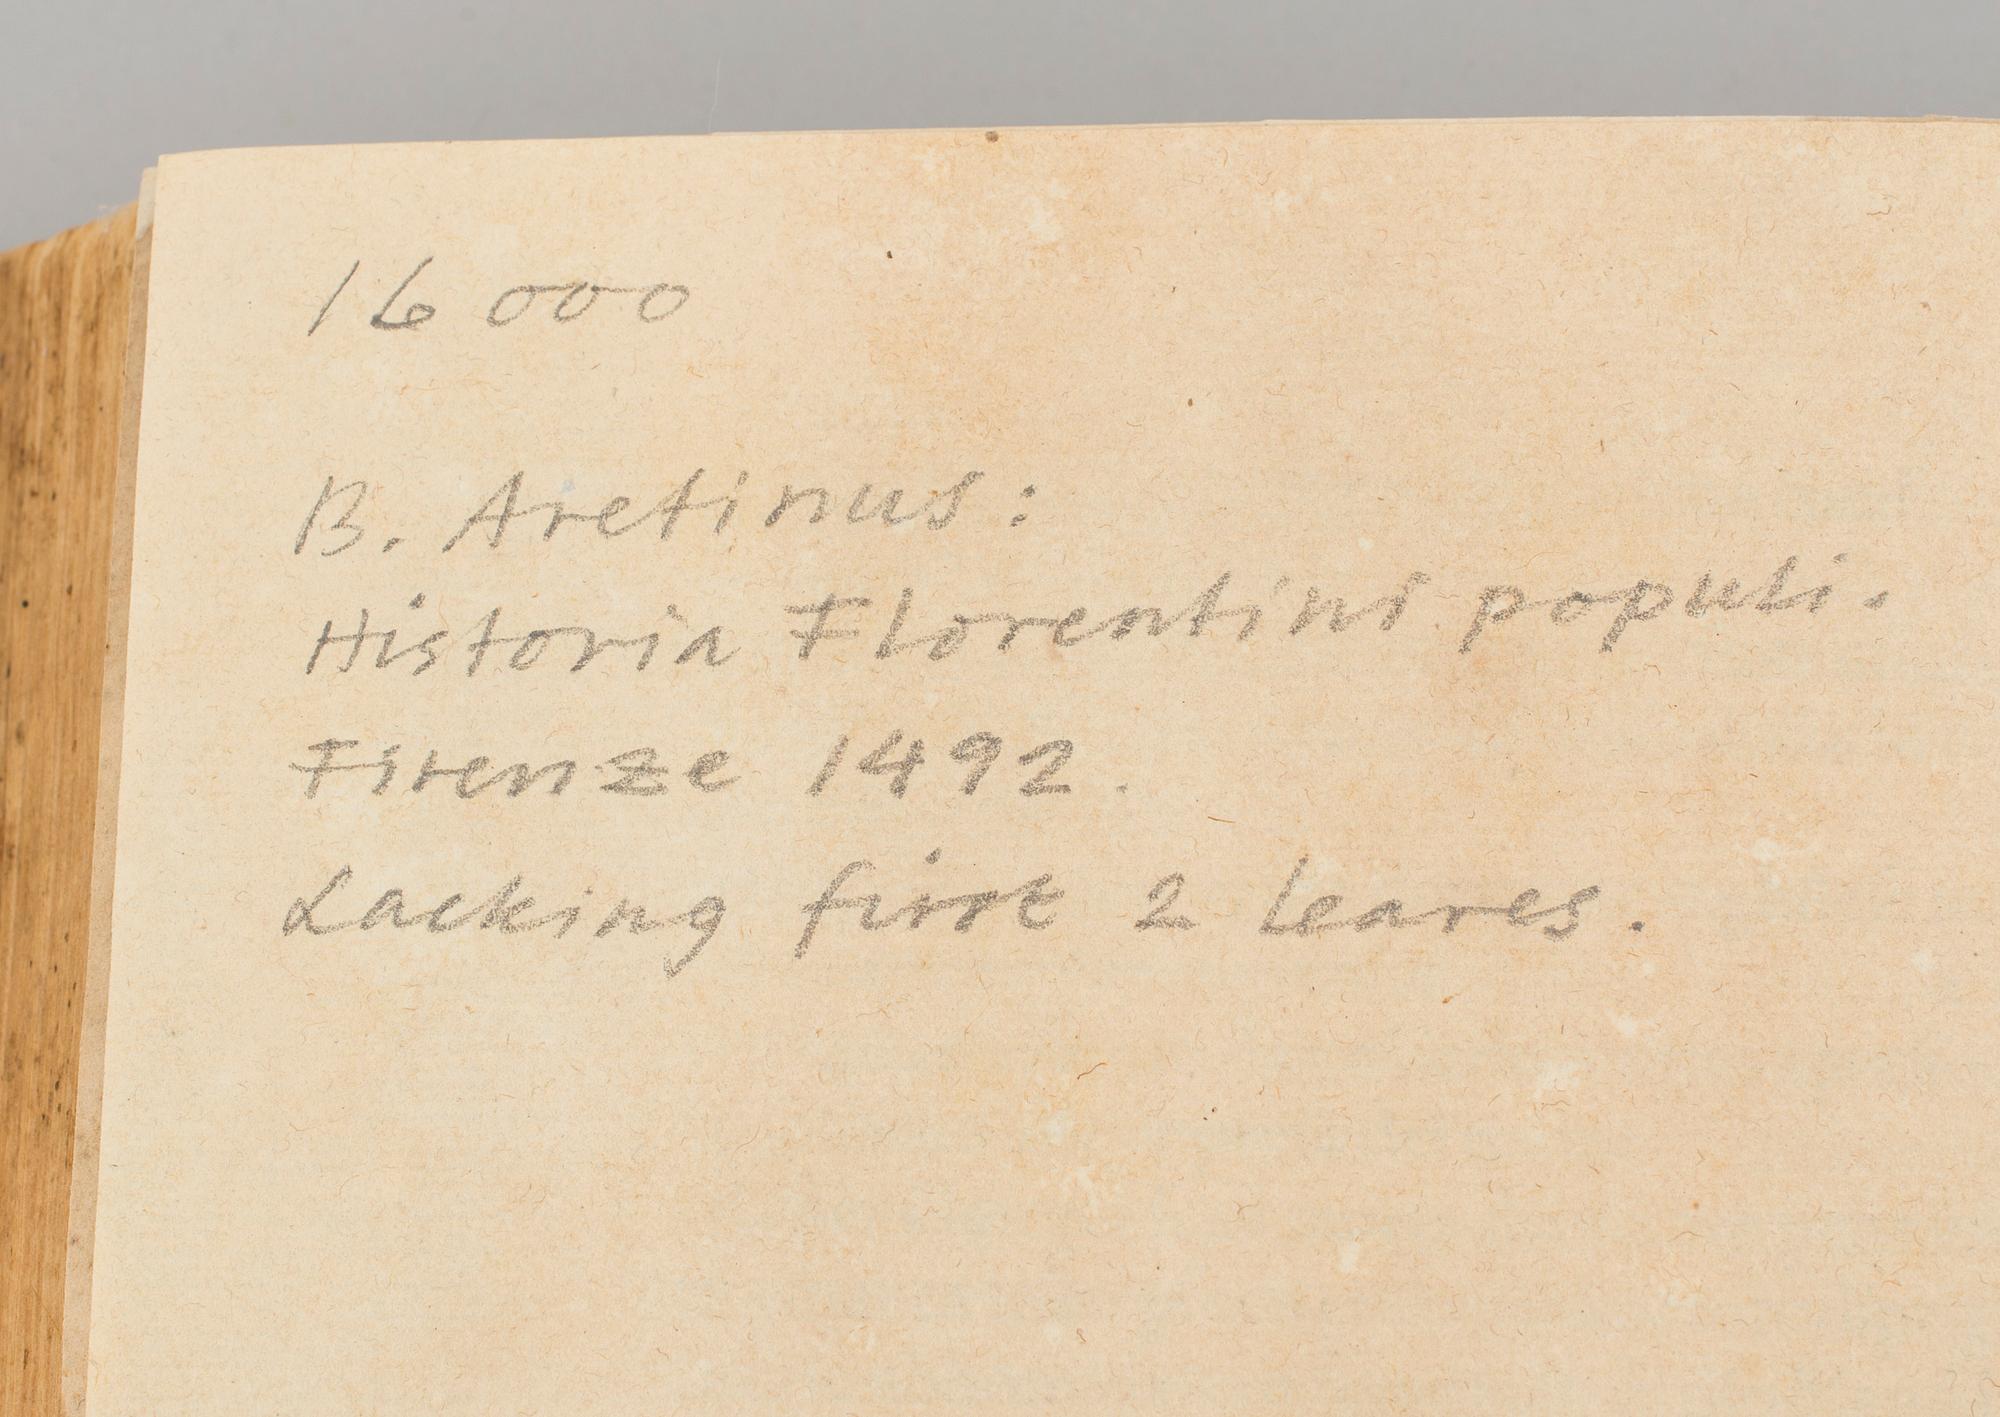 16 000
B. Aretinus:
Historia Florentini populi.
Firenze 1492.
Lacking first 2 leaves.